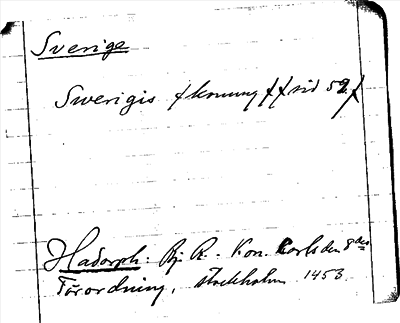 Sverige
Swerigis konung sid 52
Hadorph. Bj. R. - Kon. Carls den 8des
Förordning, Stockholm 1453.